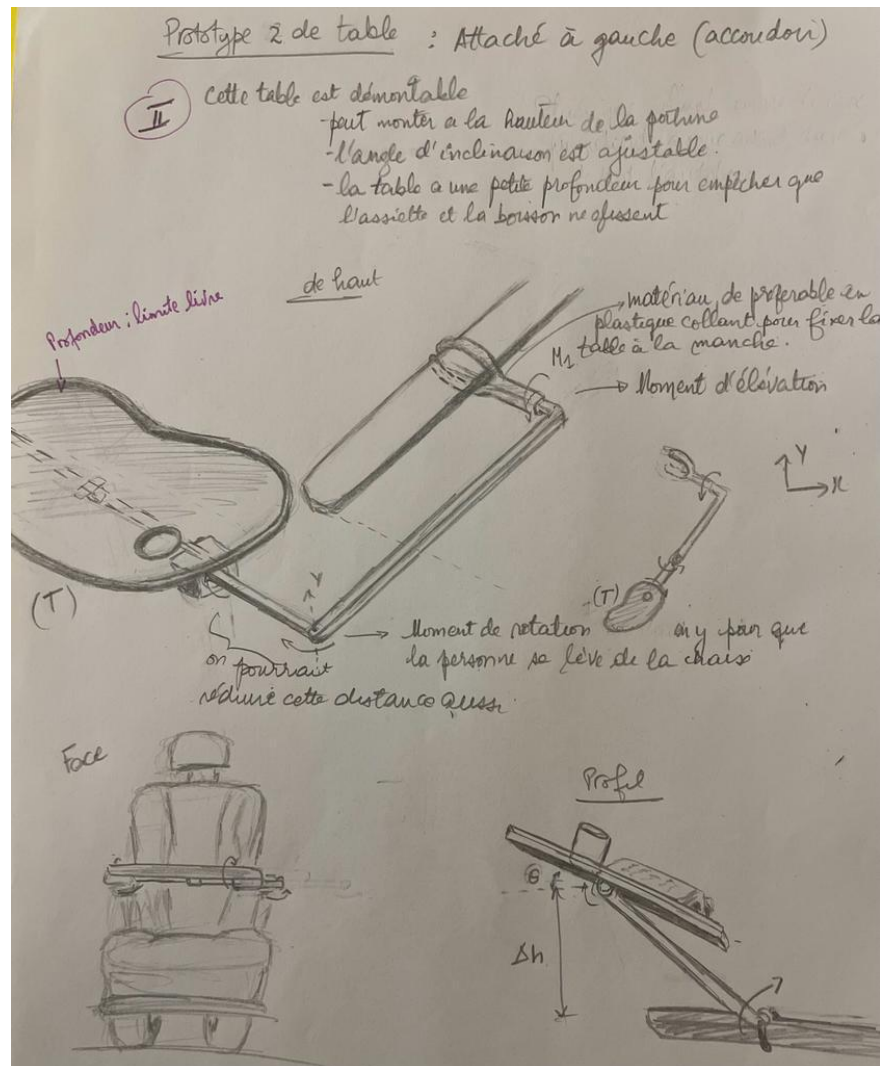 Prototype 2 de table : Attaché à gauche (accoudoir)
II
Cette table est démontable
- peut monter a la hauteur de la poitrine
- l'angle d'inclinaison est ajustable.
- la table a une petite profondeur pour empêcher que
l'assiette et la boisson ne glissent
de haut
Profondeur : limite livre
matériau, de préferable en
plastique collant pour fixer la
table à la manche.
M1
→ Moment d'élévation
Y
x
(T)
Y
(T)
→ Moment de rotation en y pour que
la personne se lève de la chaise
on pourrait
réduire cette distance aussi
Face
Profil
θ
Δh